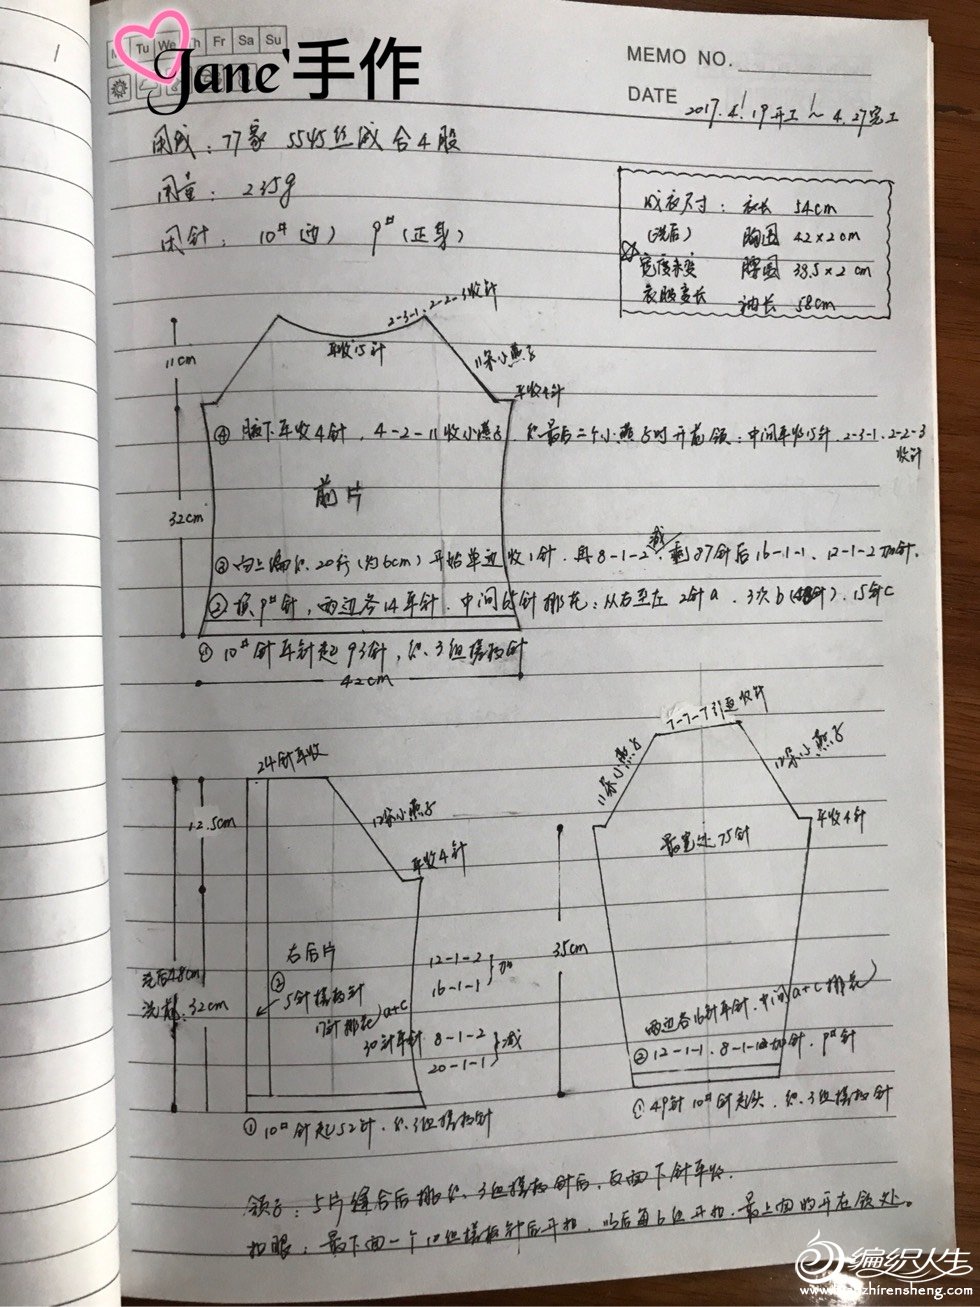 Tu We Th Fr Sa Su
Jane'手作
MEMO NO.
DATE 2017.4.19开工～4.27完工
用线：77家 5545丝绒合4股
用量：235g
用针：10#(边) 9#(正身)
成衣尺寸：衣长 54cm
(洗后) 胸围 42×2cm
宽度未变 腰围 38.5×2cm
衣服变长 袖长 58cm
2-3-1、2-2-3收针
平收15针
11cm
11朵小燕子
平收4针
④腋下平收4针，4-2-11收小燕子，织最后二个小燕子时开前领：中间平收15针，2-3-1、2-2-3
收针
前片
32cm
③向上编织20行(约6cm)开始单边收1针，再8-1-2减，剩87针后16-1-1、12-1-2加针.
②换9#针，两边各14平针，中间65针排花：从右至左 2针a、3次b(48针)、15针c
①10#针平针起93针，织3组搓板针
42cm
24针平收
12朵小燕子
12.5cm
平收4针
右后片
②
5针搓板针
17针排花)a+c
30针平针
12-1-2
16-1-1
加
8-1-2
20-1-1
减
洗后48cm
洗前：32cm
①10#针起52针，织3组搓板针
7-7-7引返收针
11朵小燕子
12朵小燕子
平收4针
最宽处75针
35cm
两边各16针平针，中间(a+c排花)
②12-1-1、8-1-12加针，9#针
①49针10#针起头，织3组搓板针
领子：5片缝合后挑织3组搓板针后，反面下针平收.
扣眼：最下面一个10组搓板针后开扣，以后每6组开扣，最上面的开在领处。
编织人生
bianzhirensheng.com